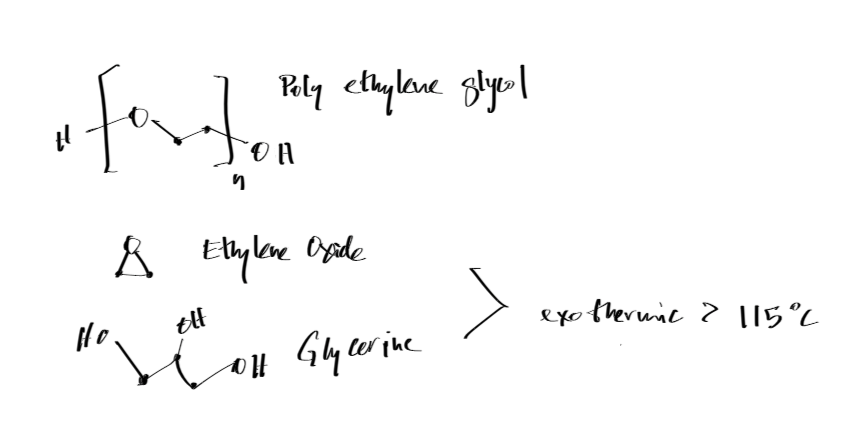 Poly ethylene glycol
H [ O ]n OH
Ethylene Oxide
HO OH OH Glycerine
exothermic > 115°C